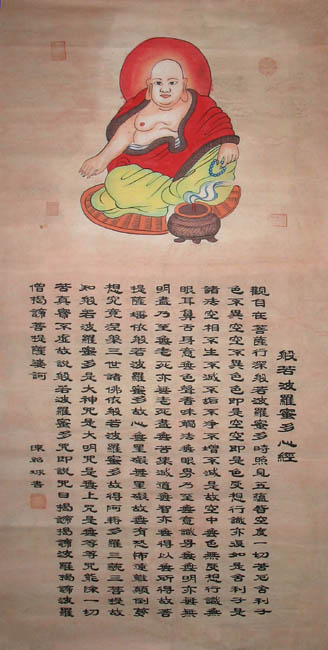 般若波羅蜜多心經
觀自在菩薩行深般若波羅蜜多時照見五蘊皆空度一切苦厄舍利子
色不異空空不異色色即是空空即是色受想行識亦復如是舍利子是
諸法空相不生不滅不垢不淨不增不減是故空中無色無受想行識無
眼耳鼻舌身意無色聲香味觸法無眼界乃至無意識界無無明亦無無
明盡乃至無老死亦無老死盡無苦集滅道無智亦無得以無所得故菩
提薩埵依般若波羅蜜多故心無罣礙無罣礙故無有恐怖遠離顛倒夢
想究竟涅槃三世諸佛依般若波羅蜜多故得阿耨多羅三藐三菩提故
知般若波羅蜜多是大神咒是大明咒是無上咒是無等等咒能除一切
苦真實不虛故說般若波羅蜜多咒即說咒曰揭諦揭諦波羅揭諦波羅
僧揭諦菩提薩婆訶